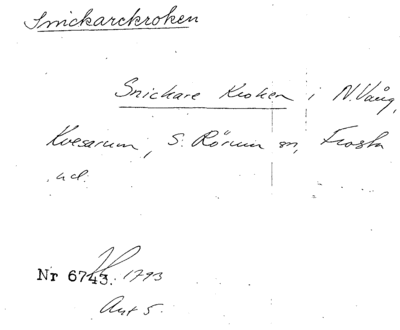 Snickarekroken
Snickare Kroken i N. Vång,
Kvesarum, S. Rörum sn, Frosta
hd.
Nr 6743. 1793
Akt 5.